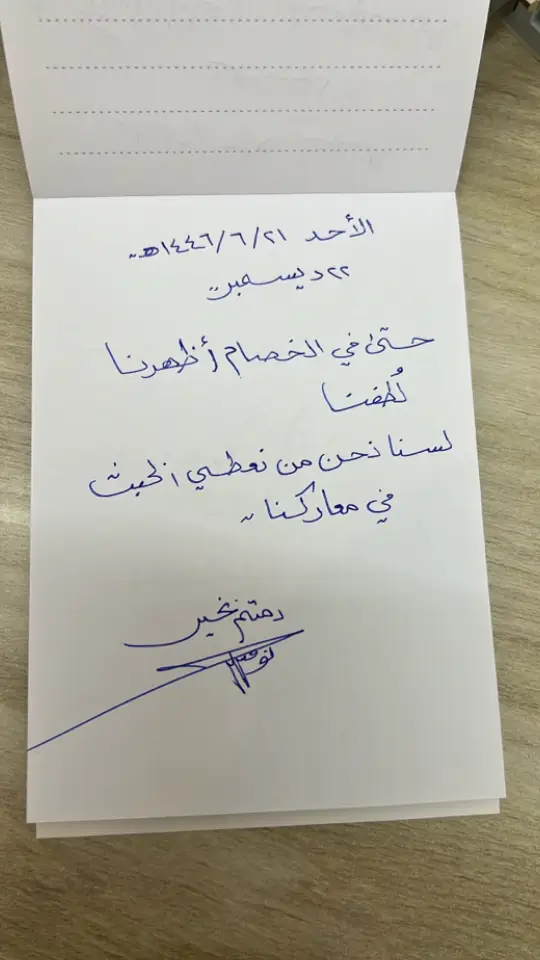 الأحد ٢١/٦/١٤٤٦هـ..
٢٢ ديسمبر..
حتىٰ في الخصام أظهرنا
لُطفنا
لسنا نحن من نعطي الخبث
في معاركنا..
دمتم بخير